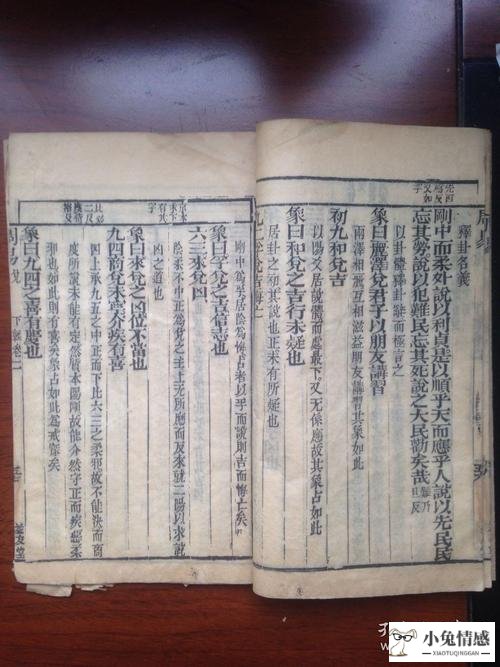 釋卦名義
剛中而柔外說以利貞是以順乎天而應乎人說以先民民
忘其勞說以犯難民忘其死說之大民勸矣哉 難乃旦反
以卦體釋卦辭而極言之
象曰麗澤兌君子以朋友講習
兩澤相麗互相滋益朋友講習其象如此
初九和兌吉
以陽爻居說體而處最下又无係應故其象占如此
象曰和兌之吉行未疑也
居卦之初其說也正未有所疑也
九二孚兌吉悔亡
剛中為孚居陰為悔占者以孚而說則吉而悔亡矣
象曰孚兌之吉信志也
六三來兌凶
陰柔不中正為兌之主上无所應而反來就二陽以求說
凶之道也
象曰來兌之凶位不當也
九四商兌未寧介疾有喜
四上承九五之中正而下比六三之柔邪故不能決而商
度所說未能有定然質本陽剛故能介然守正而疾惡柔
邪也如此則有喜矣象占如此為戒深矣
象曰九四之喜有慶也
下經卷二
益友堂
小兔情感
XIAOTUQINGGAN